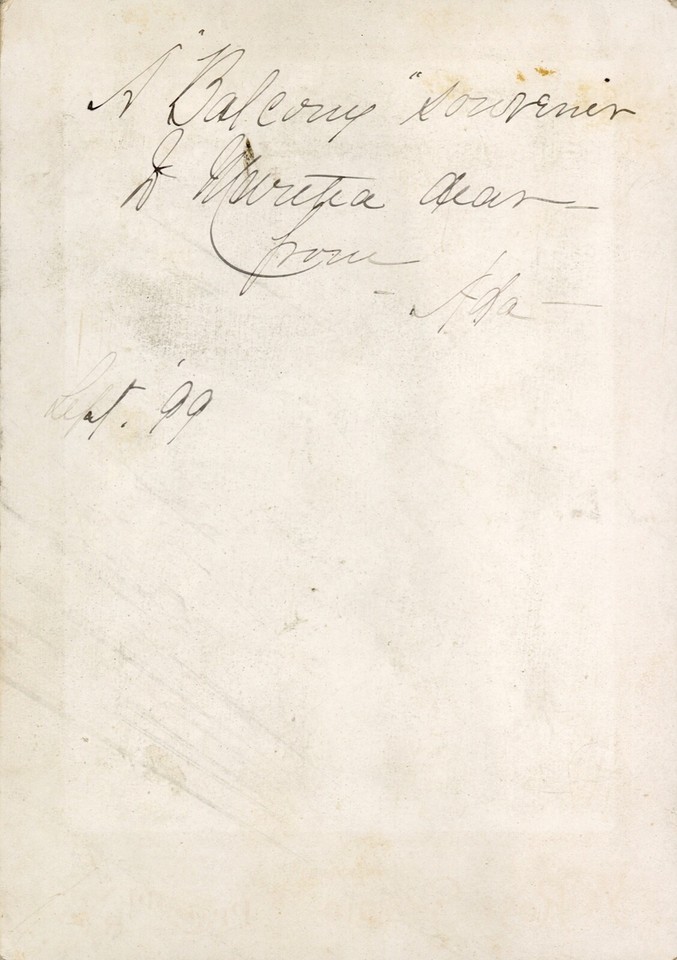 A "Balcony" souvenir
To Maretta dear —
from
— Ada —
Sept. '99